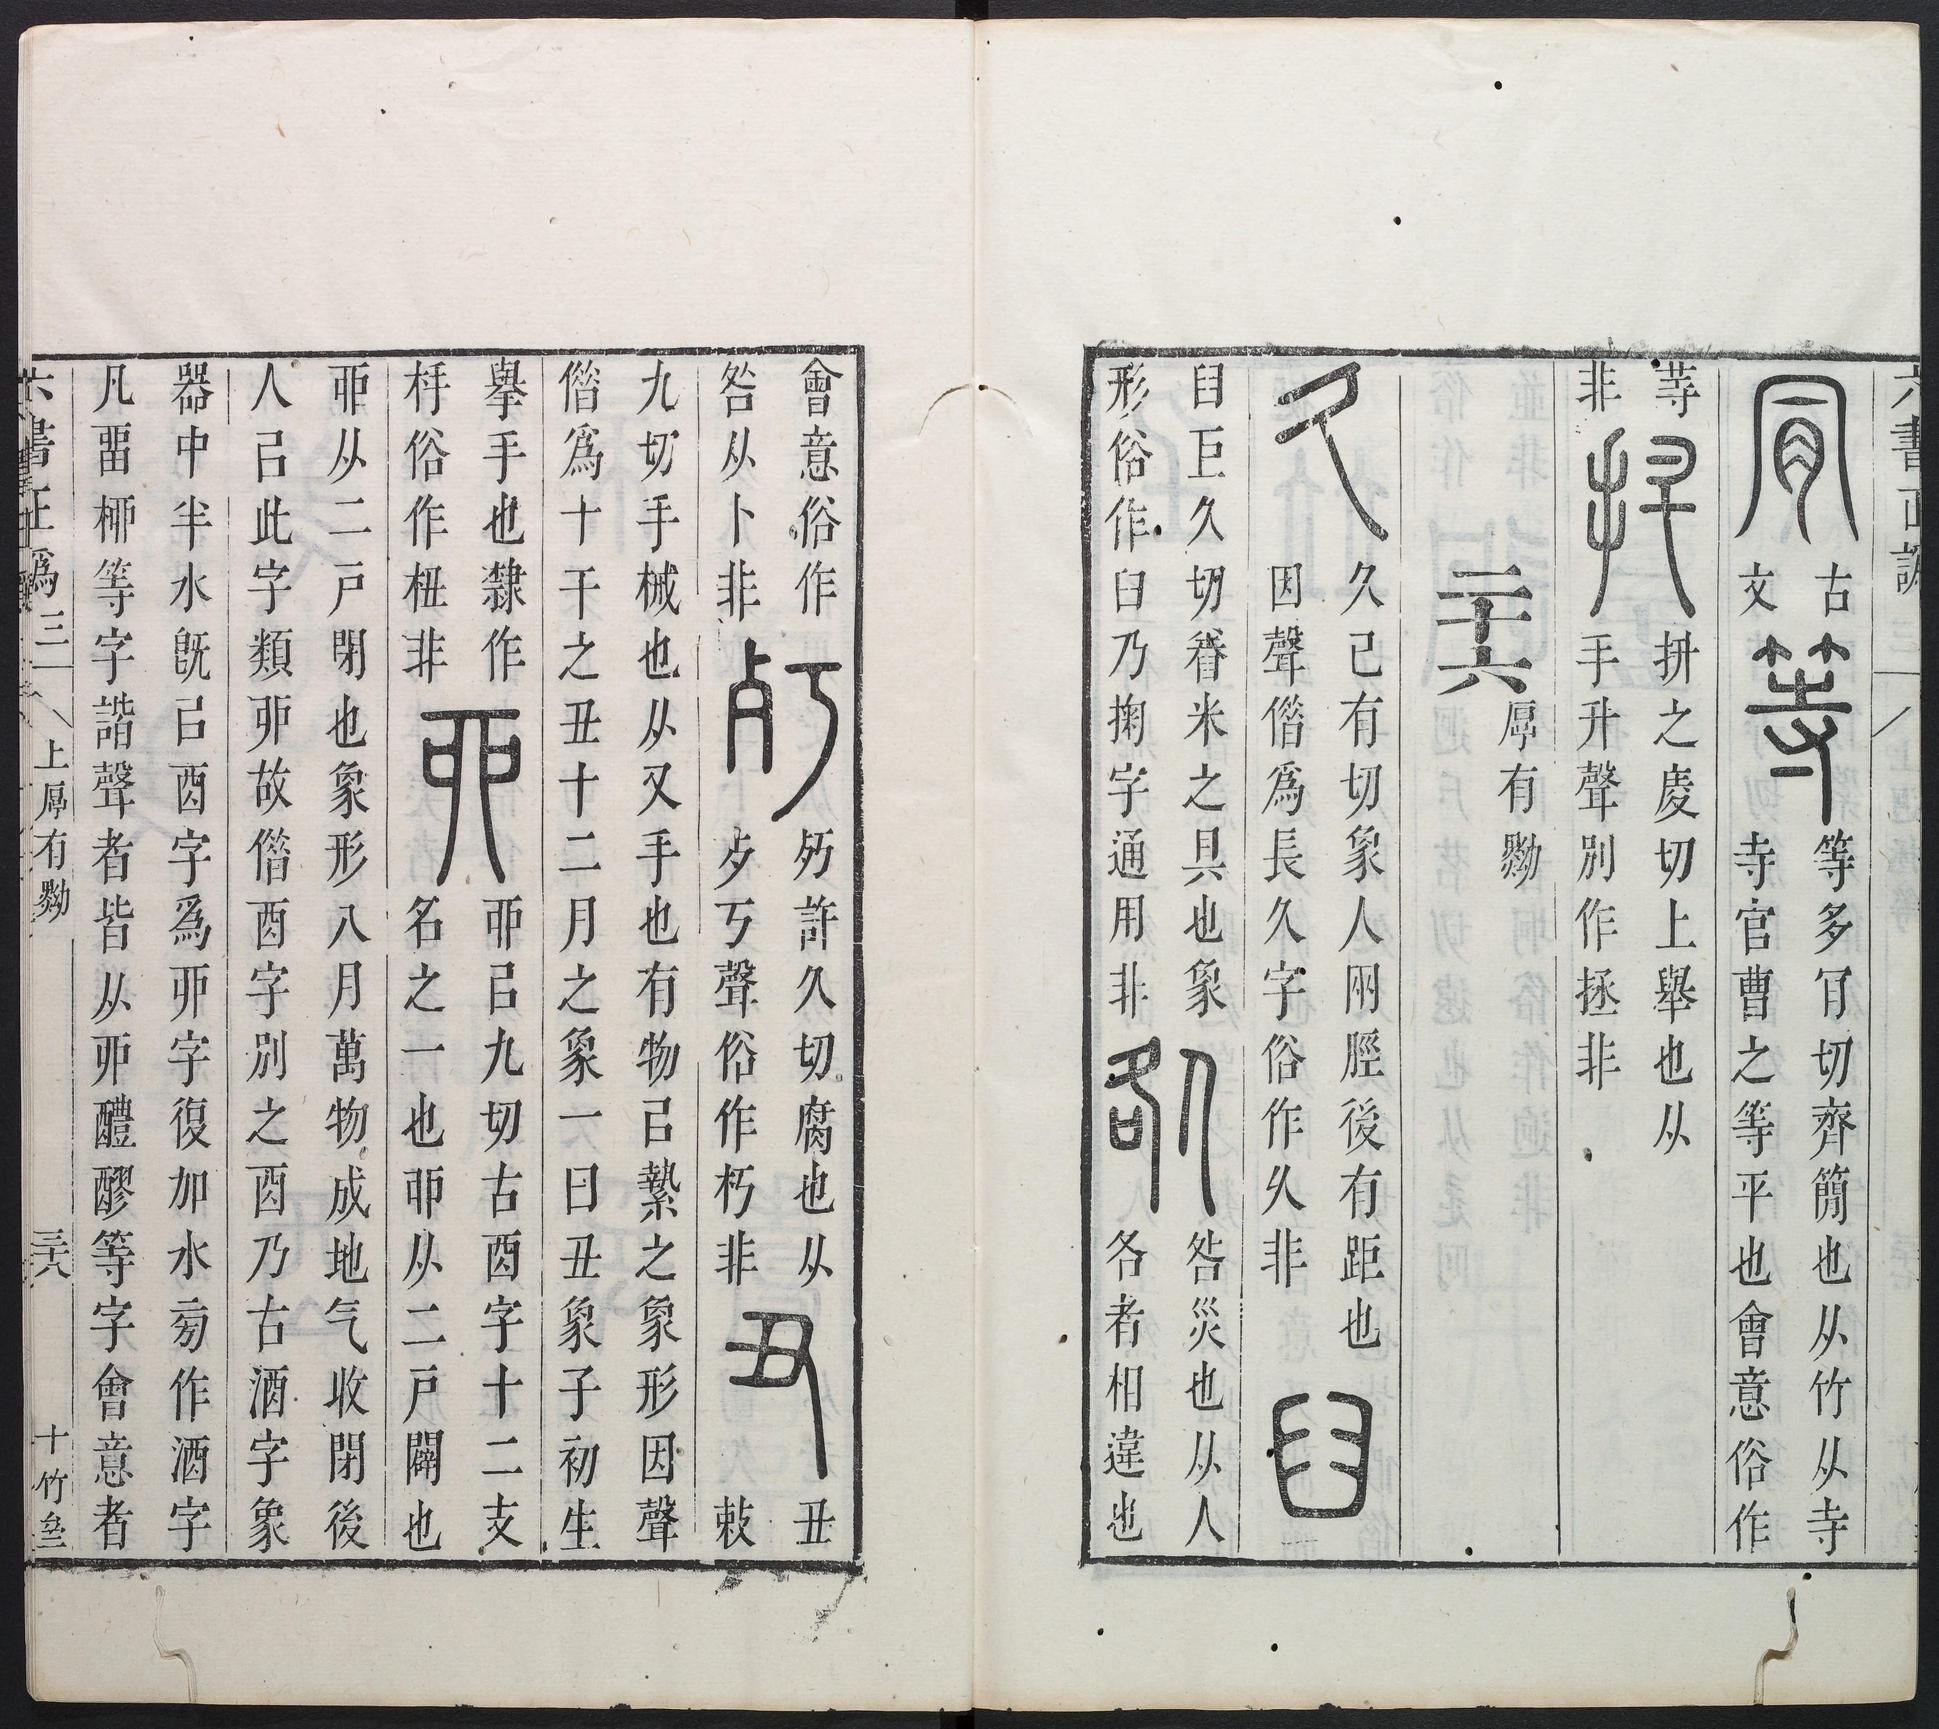 六書正譌
肎
古
文
等
等多肎切齊簡也从竹从寺
寺官曹之等平也會意俗作
䓁
非
抍
拼之庱切上舉也从
手升聲別作拯非
二十六厚有黝
久
久己有切象人兩脛後有距也
因聲借爲長久字俗作乆非
臼
臼巨久切舂米之具也象
形俗作𦥑乃掬字通用非
咎
咎災也从人
各者相違也
會意俗作
咎从卜非
㱙
㱙許久切腐也从
歺丂聲俗作朽非
丑
丑
敕
九切手械也从又手也有物㠯縶之象形因聲
借爲十干之丑十二月之象一曰丑象子初生
舉手也隸作
杽俗作杻非
丣
丣㠯九切古酉字十二支
名之一也戼从二戶闢也
丣从二戶閉也象形八月萬物成地气收閉後
人㠯此字類戼故借酉字別之酉乃古酒字象
器中半水旣㠯酉字爲丣字復加水㫄作酒字
凡畱桺等字諧聲者皆从丣醴醪等字會意者
六書正譌三 上厚有黝 三十八 十竹